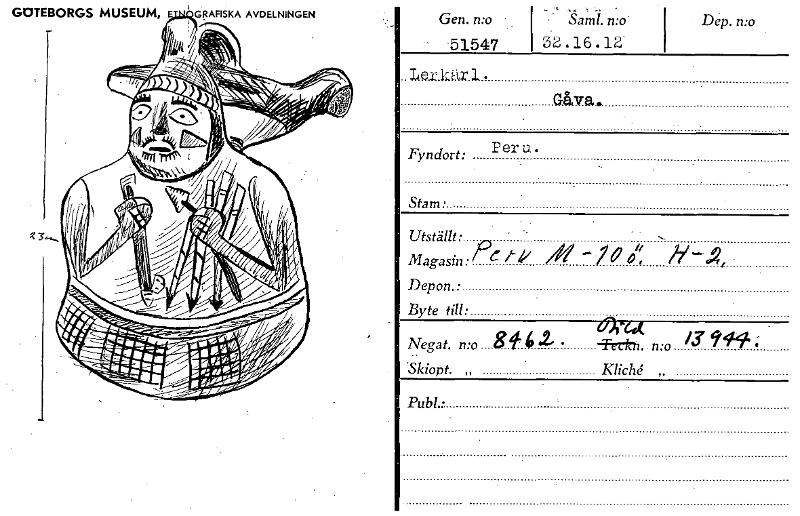 GÖTEBORGS MUSEUM, ETNOGRAFISKA AVDELNINGEN
23
Gen. n:o Saml. n:o Dep. n:o
51547 32.16.12
Lerkärl.
Gåva.
Fyndort: Peru.
Stam:
Utställt:
Magasin: Peru M-10ö. H-2,
Depon.:
Byte till:
Bild
Negat. n:o 8462. Teckn. n:o 13944.
Skiopt. „ Kliché „
Publ.: